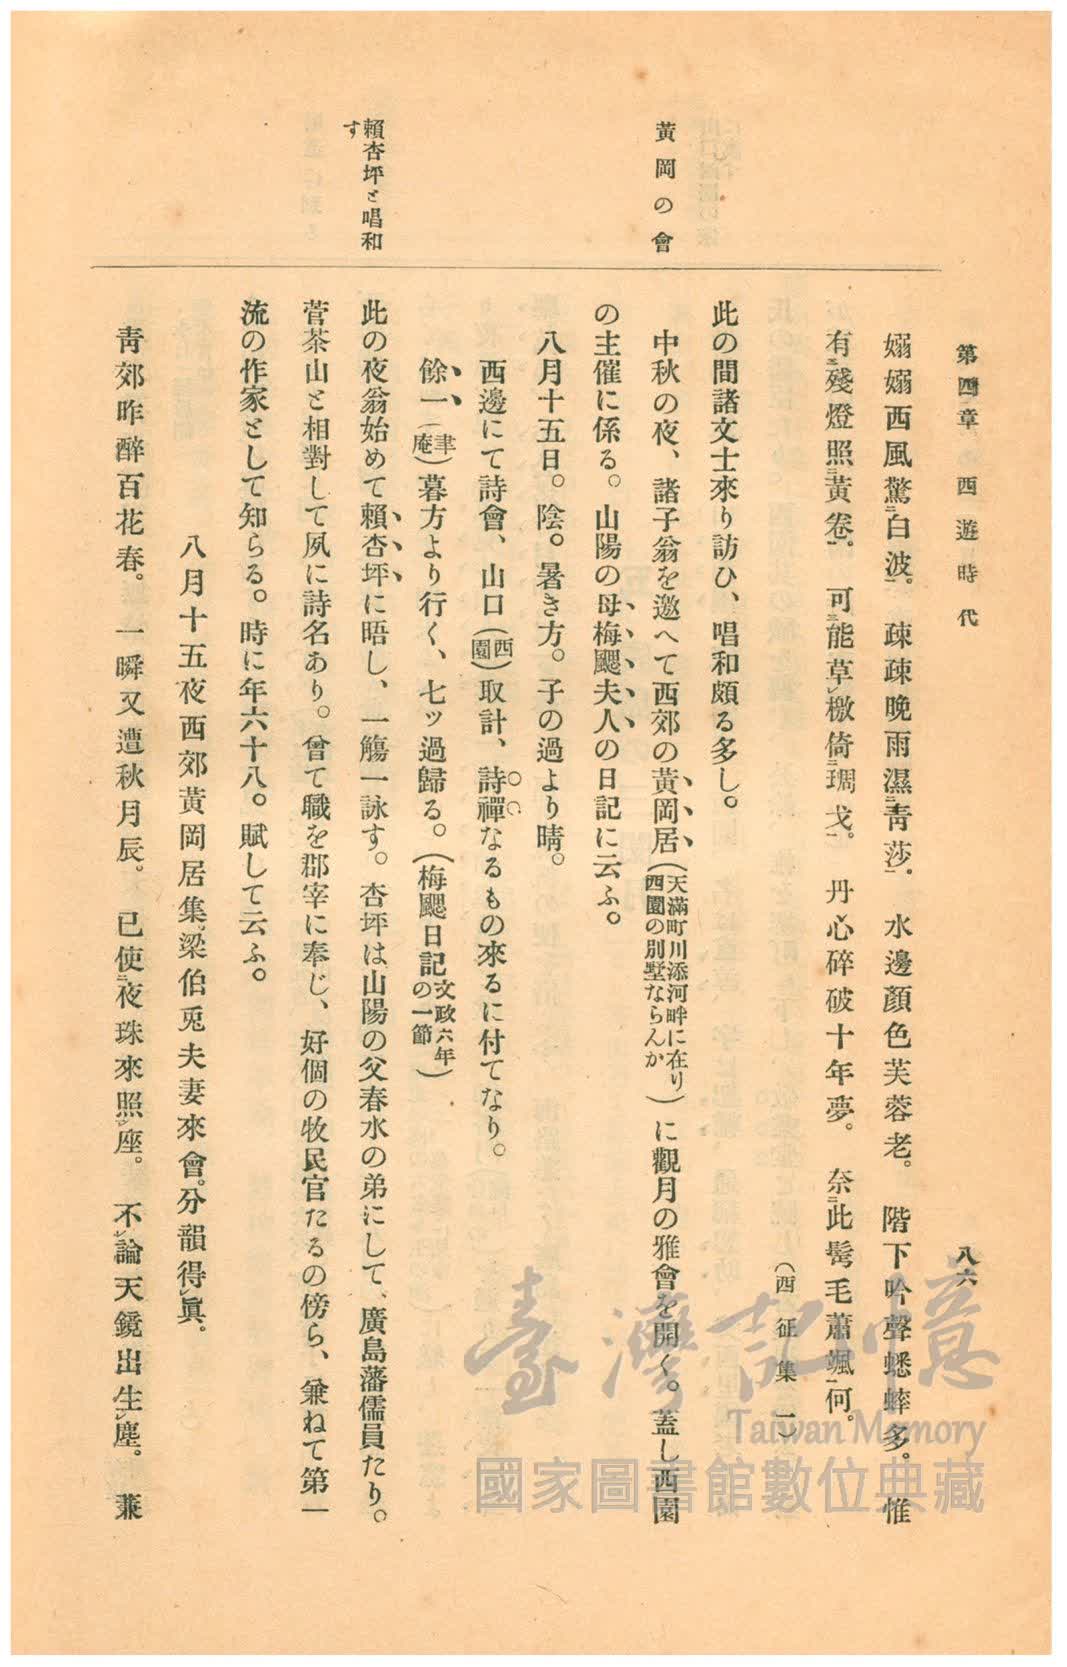 第四章 西遊時代
八六
嫋嫋西風驚白波。疎疎晩雨濕靑莎。水邊顏色芙蓉老。階下吟聲蟋蟀多。惟
有殘燈照黃卷。可能草檄倚琱戈。丹心碎破十年夢。奈此鬂毛蕭颯何。
(西征集一)
此の間諸文士來り訪ひ、唱和頗る多し。
黃岡の會
中秋の夜、諸子翁を邀へて西郊の黃岡居(天滿町川添河畔に在り西園の別墅ならんか)に觀月の雅會を開く。蓋し西園
の主催に係る。山陽の母梅颸夫人の日記に云ふ。
八月十五日。陰。暑き方。子の過より晴。
西邊にて詩會、山口(西園)取計、詩禪なるもの來るに付てなり。
餘一(聿庵)暮方より行く、七ッ過歸る。(梅颸日記文政六年の一節)
賴杏坪と唱和す
此の夜翁始めて賴杏坪に晤し、一觴一詠す。杏坪は山陽の父春水の弟にして、廣島藩儒員たり。
菅茶山と相對して夙に詩名あり。曾て職を郡宰に奉じ、好個の牧民官たるの傍ら、兼ねて第一
流の作家として知らる。時に年六十八。賦して云ふ。
八月十五夜西郊黃岡居集。梁伯兎夫妻來會。分韻得眞。
靑郊昨醉百花春。一瞬又遭秋月辰。已使夜珠來照座。不論天鏡出生塵。兼
臺灣記憶
Taiwan Memory
國家圖書館數位典藏